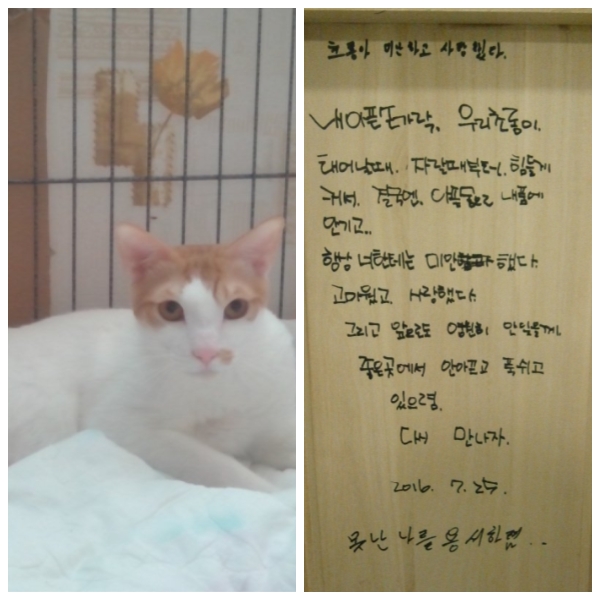 초롱아 미안하고 사랑했다.
내 아픈 손가락, 우리 초롱이.
태어날때, 자랄때부터, 힘들게
커서, 결국엔, 아픔으로 내품에
안기고..
항상 너한테는 미안했다.
고마웠고 사랑했다.
그리고 앞으로도 영원히 안잊을게.
좋은곳에서 안아프고 푹쉬고
있으렴.
다시 만나자.
2016. 7. 25.
못난 나를 용서하렴..